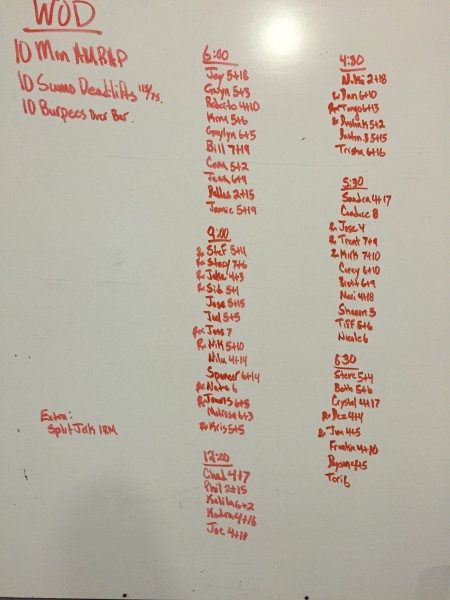 WOD
10 Min AMRAP
10 Sumo Deadlifts 115/75.
10 Burpees Over Bar.
Extra:
Split Jerk 1RM
6:00
Jay 5+18
Gwyn 5+3
Roberto 4+10
Kim 5+6
Graylyn 6+5
Bill 7+19
Cam 5+2
6+4
Dallas 2+15
Jamie 5+19
9:00
Rx Stef 5+11
Rx Stacy 7+6
Rx Jake 4+3
Rx Sid 5+1
Jose 5+15
Jud 5+5
Rx Jess 7
Rx Nik 5+10
Nilu 4+14
Spencer 6+14
Rx Nate 6
Rx 6+5
Melissa 6+3
Rx Kris 5+5
12:00
Chad 4+7
Phil 2+15
Kalila 6+2
Kendra 4+16
Joe 4+18
4:30
Nikki 2+18
Rx Dan 6+10
Rx 6+13
Rx 5+2
Justin B 5+15
Trisha 6+16
5:30
Sandra 4+17
Candice 8
Rx Jose 4
Rx Trent 7+9
Rx Kirk 7+10
Corey 6+10
Brett 6+9
Mari 4+18
Sharon 5
Tiff 5+6
Nicole 6
6:30
Steve 5+4
Beth 5+6
Crystal 4+17
Rx Dez 4+4
Rx Jim 4+5
Frankie 4+10
Tori 6